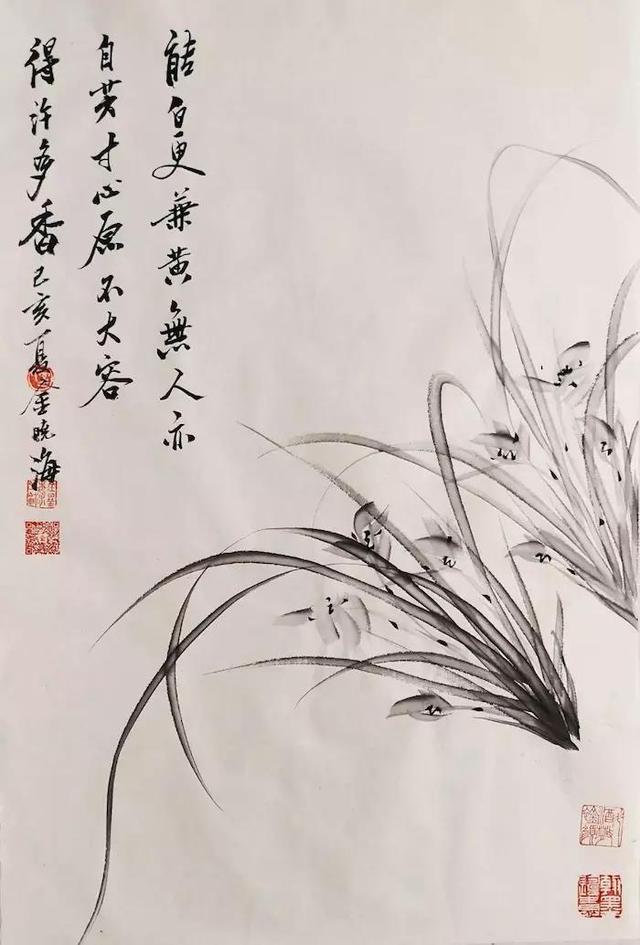 能白更兼黄無人亦
自芳寸心原不大容
得許多香己亥夏金曉海